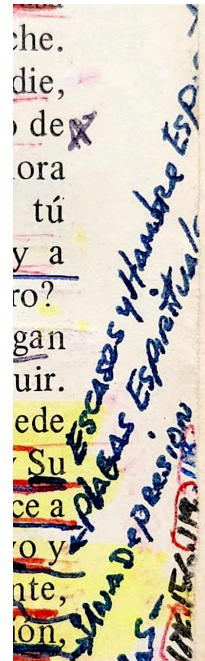 che.
die,
o de
ora
tú
y a
ro?
gan
uir.
ede
y Su
ce a
vo y
nte,
ión,
Escases y Hambre Esp
Plagas Espiritual
Una Depresion